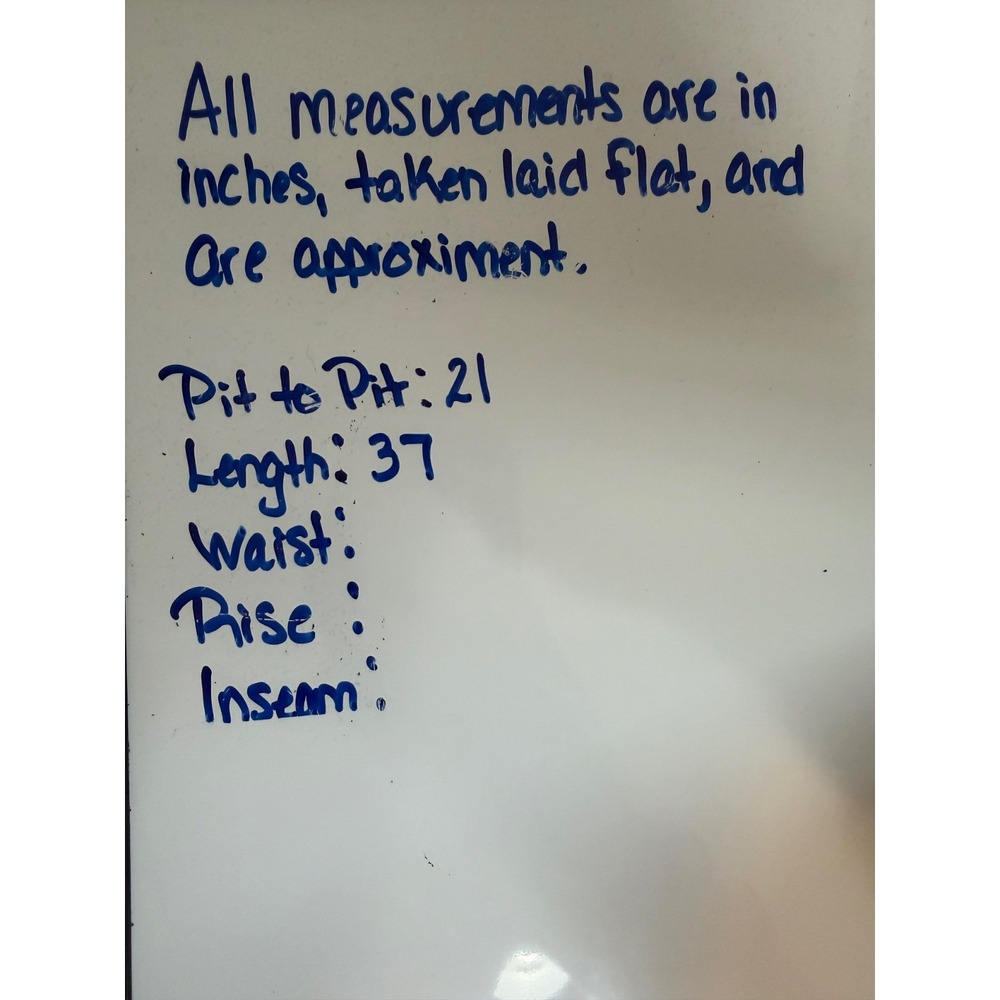 All measurements are in
inches, taken laid flat, and
are approximent.
Pit to Pit: 21
Length: 37
Waist:
Rise :
Inseam: